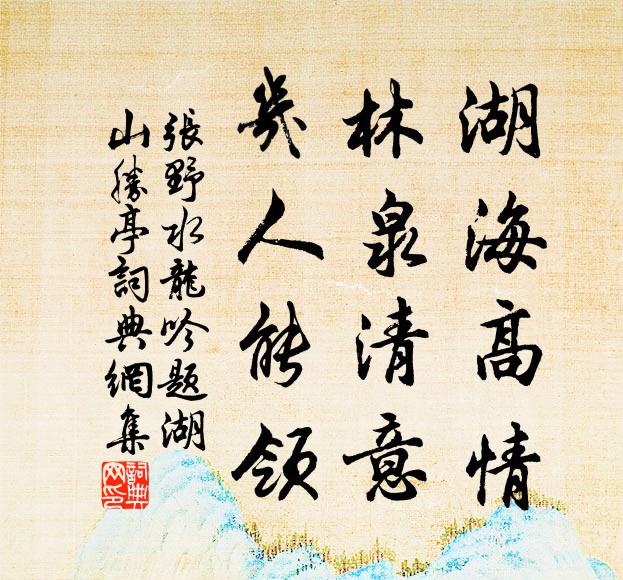 湖海高情
林泉清意
幾人能領
張野水龍吟題湖
山勝亭詞典網集
詞典
網印